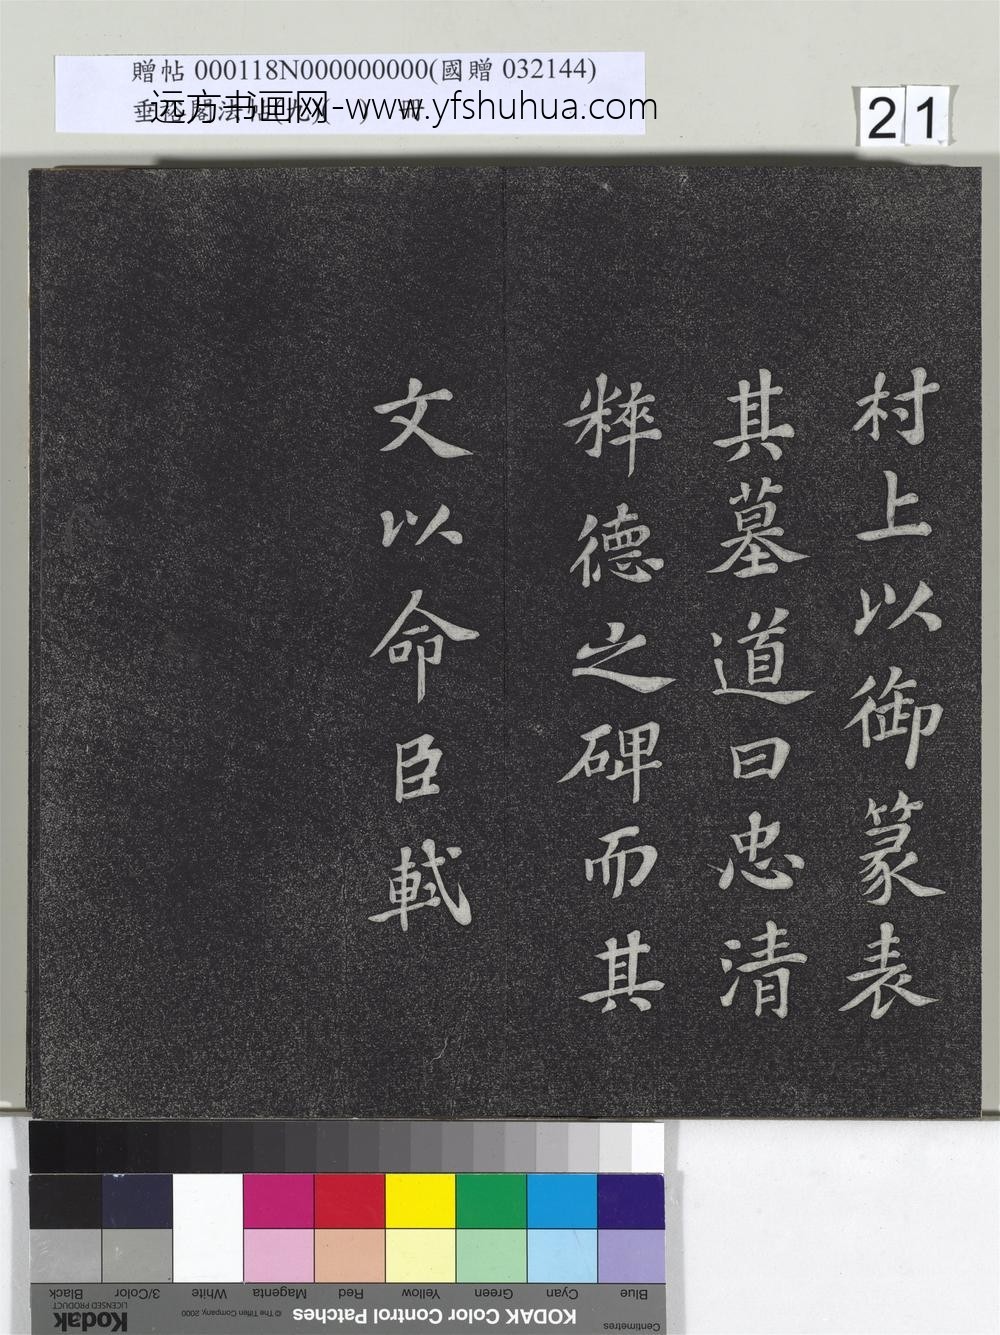 贈帖 000118N000000000(國贈 032144)
远方书画网-www.yfshuhua.com
21
村上以御篆表
其墓道曰忠清
粹德之碑而其
文以命臣軾
Blue
Cyan
Green
Yellow
Red
Magenta
White
3/Color
Black
Centimetres
KODAK Color Control Patches
© The Tiffen Company, 2000
Kodak
LICENSED PRODUCT